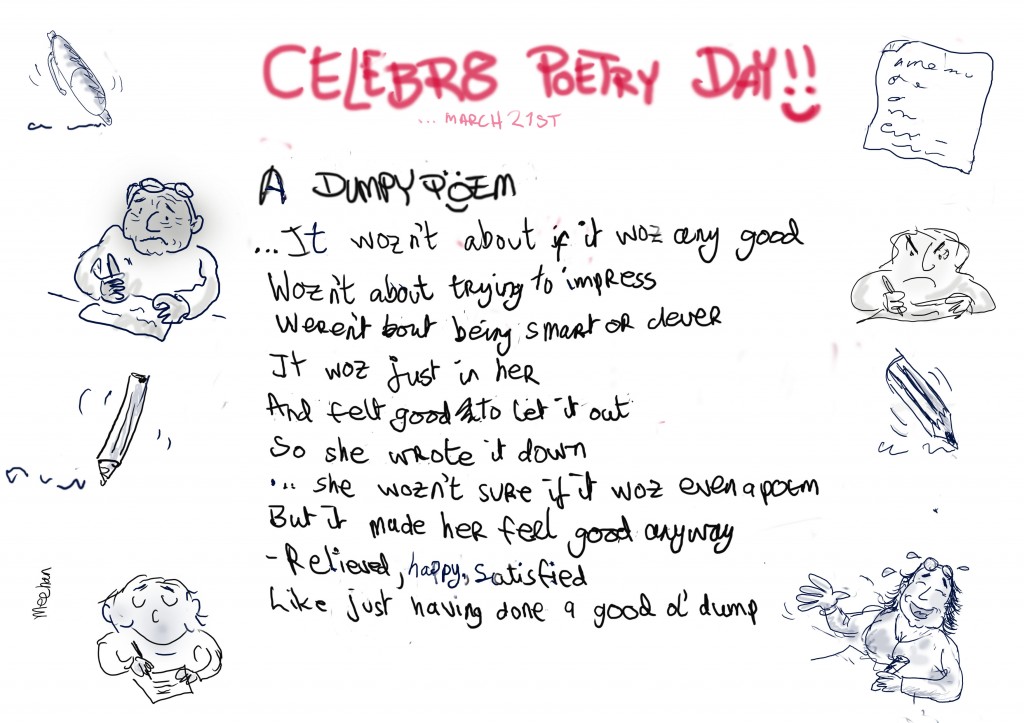 CELEBR8 POETRY DAY!!
... MARCH 21ST
A DUMPY POEM
...It wozn't about if it woz any good
Wozn't about trying to impress
Weren't bout being smart OR clever
It woz just in her
And felt good to let it out
So she wrote it down
... she wozn't sure if it woz even a poem
But it made her feel good anyway
- Relieved, happy, satisfied
Like just having done a good ol' dump
Meehan